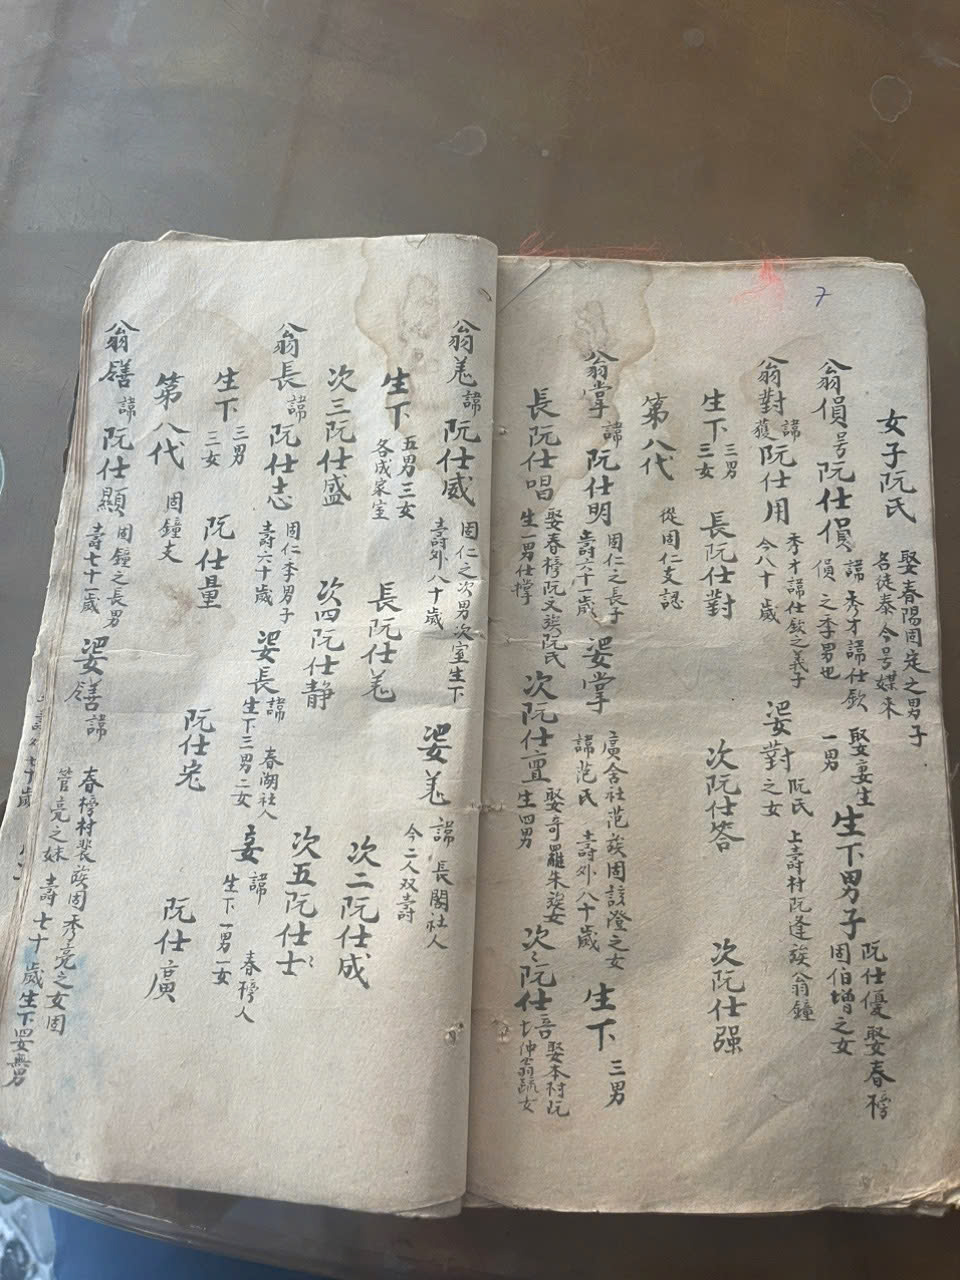 7
女子阮氏 娶春陽固定之男子 名徒泰今号媒来
翁傊号阮仕傊 諱秀才諱仕欽 傊之季男也 娶妻生一男 生下男子 阮仕優娶春榜 固伯增之女
翁對諱獲阮仕用 秀才諱仕欽之義子 今八十歲 婆對 阮氏 之女 上壽村阮逢族翁鐘
生下 三男 三女 長阮仕對 次阮仕答 次阮仕强
第八代 從固仁支認
翁掌諱阮仕明 固仁之長子 壽六十一歲 婆掌 廣舍社范族固該澄之女 諱范氏 壽外八十歲 生下 三男
長阮仕唱 娶春榜阮文族阮氏 生一男仕撑 次阮仕亶 娶奇羅朱族女 生四男 次阮仕 娶本村阮 女
翁羗諱阮仕威 固仁之次男次室生下 壽外八十歲 婆羗 諱 長閣社人 今二人双壽
生下 五男三女 各成家室 長阮仕羗 次二阮仕成
次三阮仕盛 次四阮仕静 次五阮仕士
翁長諱阮仕志 固仁季男子 壽六十歲 婆長諱 春湖社人 生下三男二女 妾諱 春榜人 生下一男一女
生下 三男 三女 阮仕量 阮仕宠 阮仕廣
第八代 固鐘支
翁饍諱阮仕顯 固鐘之長男 壽七十二歲 婆饍諱 春榜村裴族固秀亮之女固 管亮之妹 壽七十歲生下四女無男